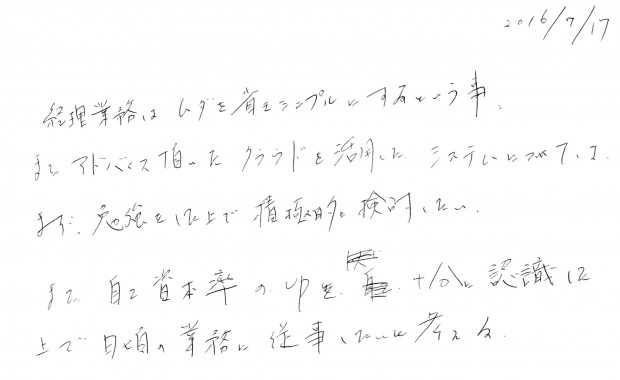 2016/7/17
経理業務はムダを省きシンプルにするという事、
また アドバイス頂いた クラウドを活用した システムについては、
まず、勉強をした上で積極的に検討したい。
また 自己資本率のupを、 十分に認識した
上で日々の業務に従事したいと考える。